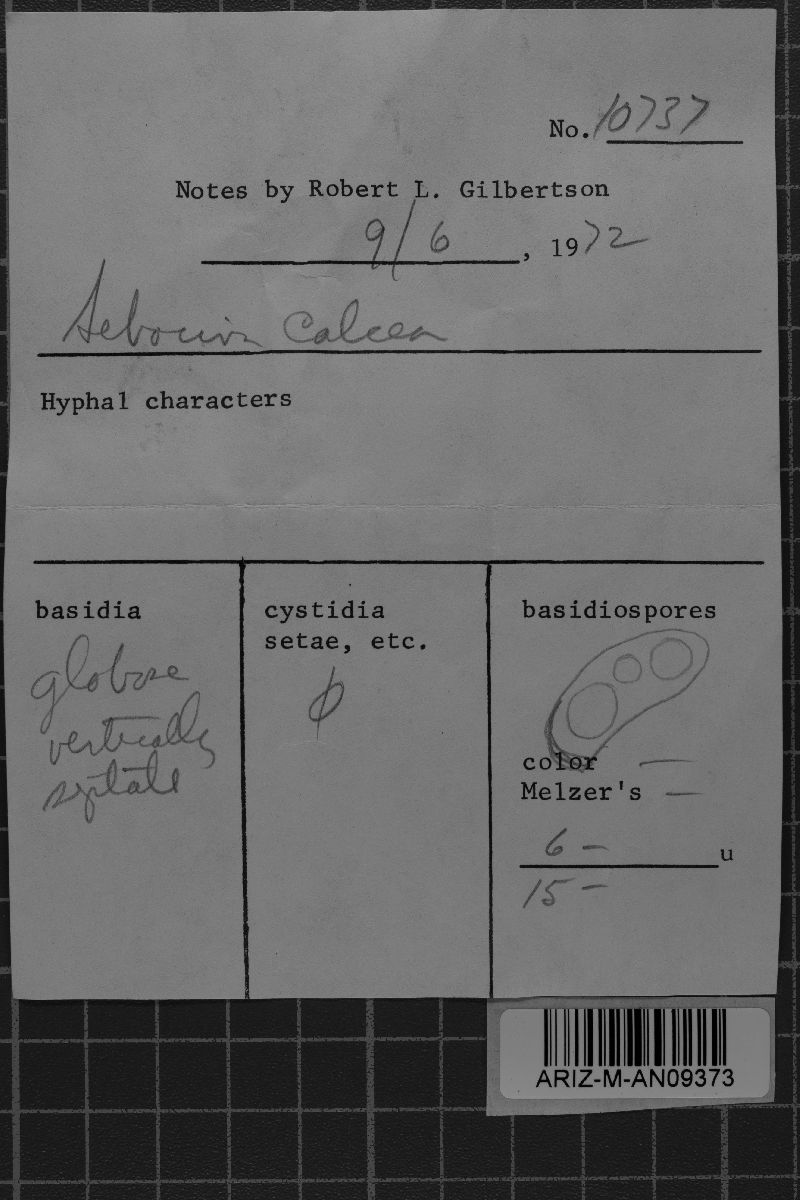 No. 10737
Notes by Robert L. Gilbertson
9/6, 1972
Sebacina calcea
Hyphal characters
basidia
globose
vertically
septate
cystidia
setae, etc.
φ
basidiospores
color —
Melzer's —
6 — u
15 —
ARIZ-M-AN09373